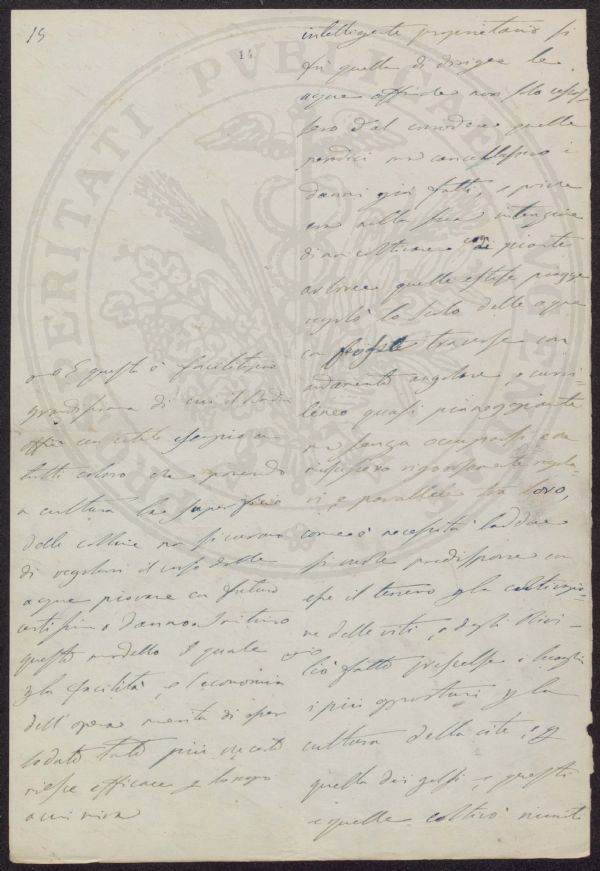 15
14
intelligente proprietario si
fu quella di dirigere le
acque affinche non solo cessas-
sero dal corrodere quelle
pendici ma cancellassero i
danni già fatti, e poiche
era nella sua intenzione
di non coltivare con piante
arboree quelle estese piagge
regolò lo scolo delle acque
con fosse traverse con
andamento angolare, e curvi-
lineo quasi pianeggiante
ma senza occuparsi che
riuscissero rigorosamente regola-
ri, e parallele tra loro,
come è necessità laddove
si vuole predisporre con
esse il terreno per la coltivazio-
ne delle viti, e degli Olivi -
Ciò fatto prescelse i luoghi
i più opportuni per la
cultura della vite, e per
quella dei gelsi, e questi
e quelle coltivò riuniti
E questa è facilitazione
grandissima di cui il
offre un utile esempio a
tutti coloro che ponendo
a cultura la superficie
delle colline non si curano
di regolare il corso delle
acque piovane con futuro
certissimo danno. Imitino
questo modello il quale
per la facilità, e l'economia
dell'opera merita di esser
lodato tanto più in quanto
riesce efficace e